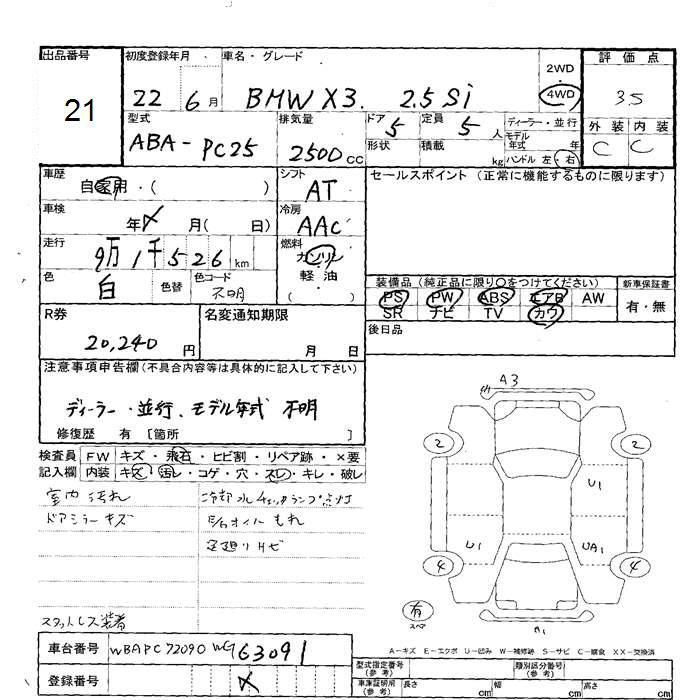 出品番号
21
初度登録年月
22 6月
車名・グレード
BMW X3. 2.5Si
2WD
・
4WD
評価点
3.5
外装 内装
C C
型式
ABA-PC25
排気量
2500 CC
ドア
5
定員
5 人
形状
積載
kg
ディーラー・並行
モデル年式 年
ハンドル 左・右
車歴
自家用・( )
車検
年 月( 日)
走行
9万1千526 km
色
白
色替
色コード
不明
シフト
AT
冷房
AAC
燃料
ガソリン
軽油
( ・ )
セールスポイント (正常に機能するものに限ります)
装備品 (純正品に限り○をつけてください)
PS PW ABS エアB AW
SR ナビ TV カワ
新車保証書
有・無
後日品
R券
20,240 円
名変通知期限
月 日
注意事項申告欄(不具合内容等は具体的に記入して下さい)
ディーラー・並行、モデル年式 不明
修復歴 有 [箇所 ]
検査員
記入欄
FW キズ・飛石・ヒビ割・リペア跡・×要
内装 キズ・汚れ・コゲ・穴・スレ・キレ・破レ
室内汚れ
ドアミラーキズ
冷却水チェックランプ点灯
E/gオイルもれ
足廻りサビ
スタットレス装着
A3
2
2
U1
U1
UA1
4
4
有
スペア
A1
A-キズ E-エクボ U-凹み W-補修跡 S-サビ C-腐食 XX-交換済
車台番号
WBAPC72090WG63091
登録番号
型式指定番号
(参考)
類別区分番号
(参考)
車庫証明用
(参考)
長さ cm
幅 cm
高さ cm